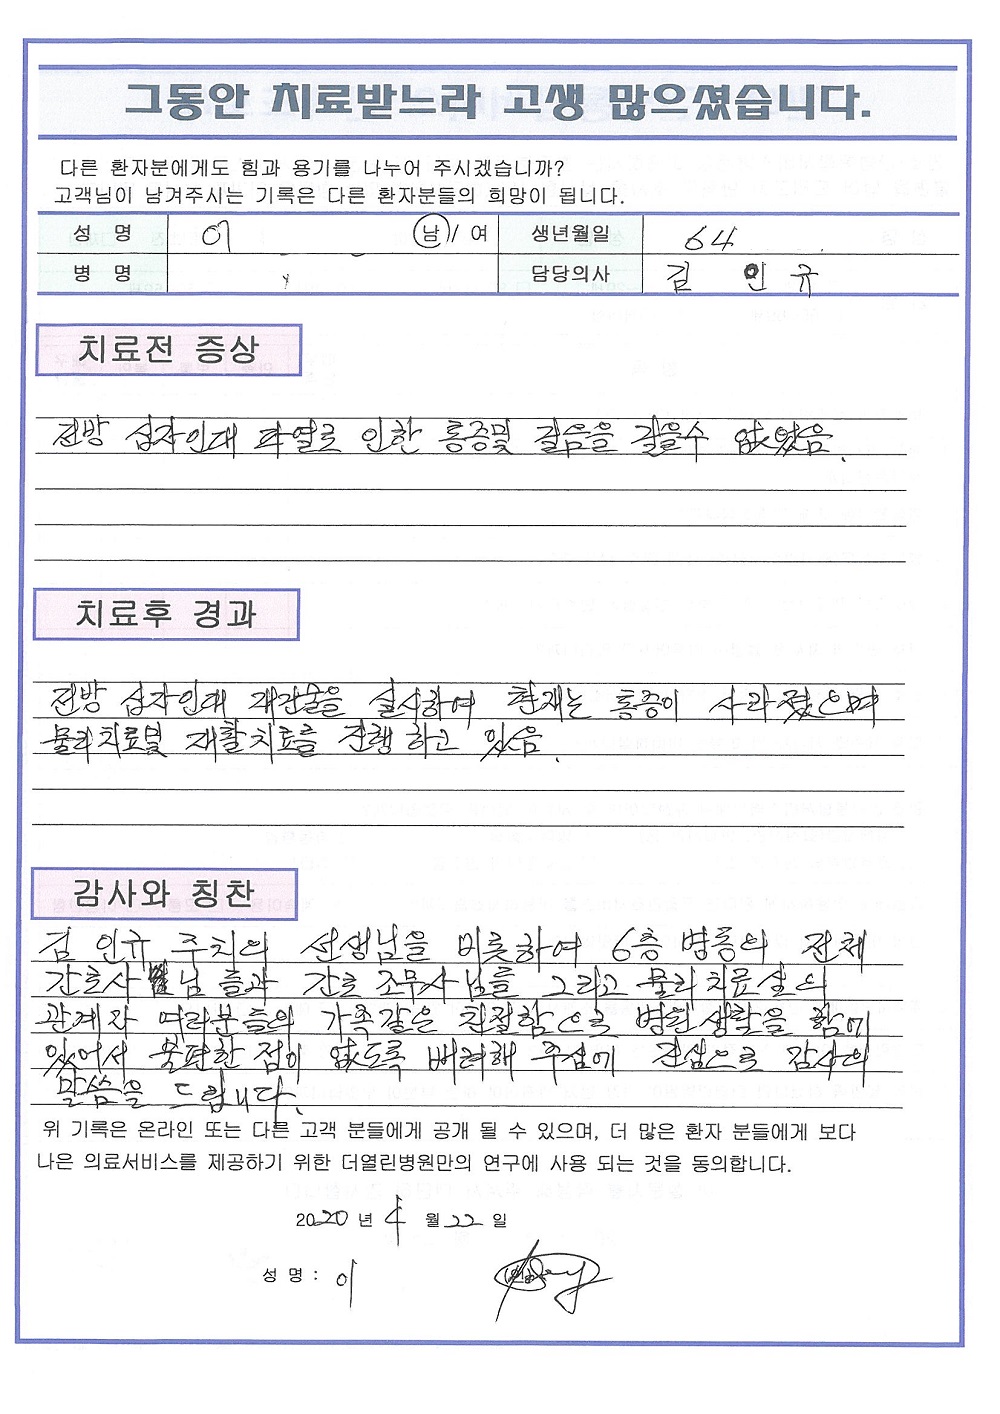 그동안 치료받느라 고생 많으셨습니다.
다른 환자분에게도 힘과 용기를 나누어 주시겠습니까?
고객님이 남겨주시는 기록은 다른 환자분들의 희망이 됩니다.
성 명 이 남 / 여 생년월일 64
병 명 담당의사 김 민 규
치료전 증상
전방 십자인대 파열로 인한 통증및 걸음을 걸을수 없었음.
치료후 경과
전방 십자인대 재건술을 실시하여 현재는 통증이 사라졌으며
물리치료및 재활치료를 진행 하고 있음.
감사와 칭찬
김 인규 주치의 선생님을 비롯하여 6층 병동의 전체
간호사 님 들과 간호 조무사님들 그리고 물리치료실의
관계자 여러분들의 가족같은 친절함으로 병원생활을 함에
있어서 불편한 점이 없도록 배려해 주심에 진심으로 감사의
말씀을 드립니다.
위 기록은 온라인 또는 다른 고객 분들에게 공개 될 수 있으며, 더 많은 환자 분들에게 보다
나은 의료서비스를 제공하기 위한 더열린병원만의 연구에 사용 되는 것을 동의합니다.
2020 년 4 월 22 일
성 명 : 이